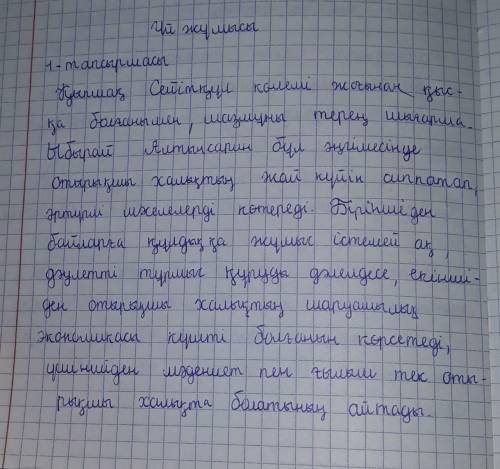 Үй жұмысы
1-тапсырмасы
Қыпшақ Сейітқұл көлемі жағынан қыс-
қа болғанымен, мазмұны терең шығарма.
Ыбырай Алтынсарин бұл әңгімесінде
отырықшы халықтың жай күйін сипатап,
әртүрлі мәселелерді көтереді. Біріншіден
байларға құлдыққа жұмыс істемей ақ,
дәулетті тұрмыс құруды дәлелдесе, екінші-
ден отырықшы халықтың шаруашылық
экономикасы күшті болғанын көрсетеді,
үшіншіден мәдениет пен ғылым тек оты-
рықшы халықта болатының айтады.